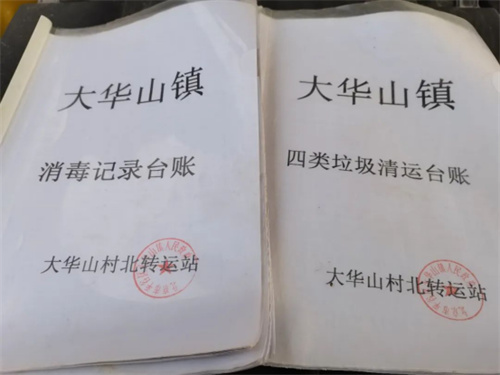 大华山镇
消毒记录台账
大华山村北转运站
大华山镇
四类垃圾清运台账
大华山村北转运站